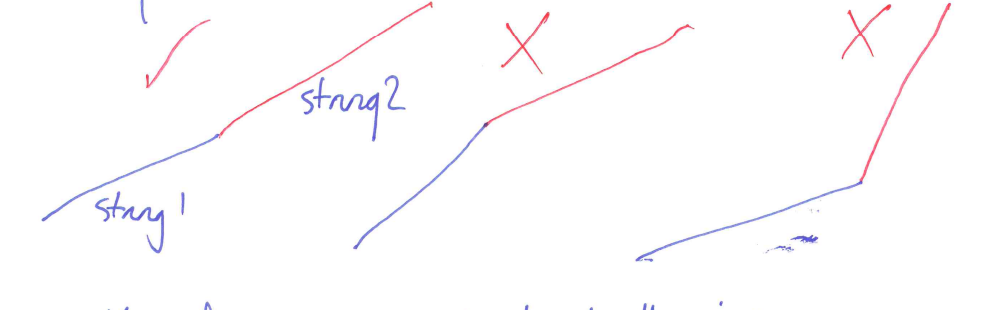 string 2
string 1